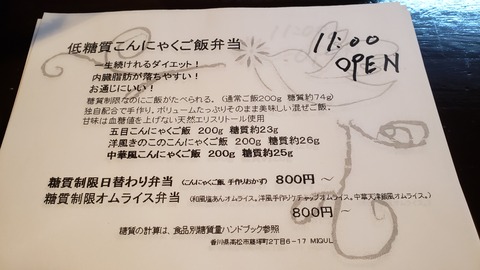 低糖質こんにゃくご飯弁当
11:00
OPEN
一生続けれるダイエット！
内臓脂肪が落ちやすい！
お通じにいい！
糖質制限なのにご飯がたべられる。（通常ご飯200g 糖質約74g）
独自配合で手作り。ボリュームたっぷりそのまま美味しい混ぜご飯。
甘味は血糖値を上げない天然エリスリトール使用
五目こんにゃくご飯 200g 糖質約23g
洋風きのこのこんにゃくご飯 200g 糖質約26g
中華風こんにゃくご飯 200g 糖質約25g
糖質制限日替わり弁当 （こんにゃくご飯 手作りおかず） 800円 ～
糖質制限オムライス弁当 （和風塩あんオムライス。洋風手作りケチャップオムライス。中華天津飯風オムライス。）
800円 ～
糖質の計算は、食品別糖質量ハンドブック参照
香川県高松市藤塚町2丁目6－17 MIQUL